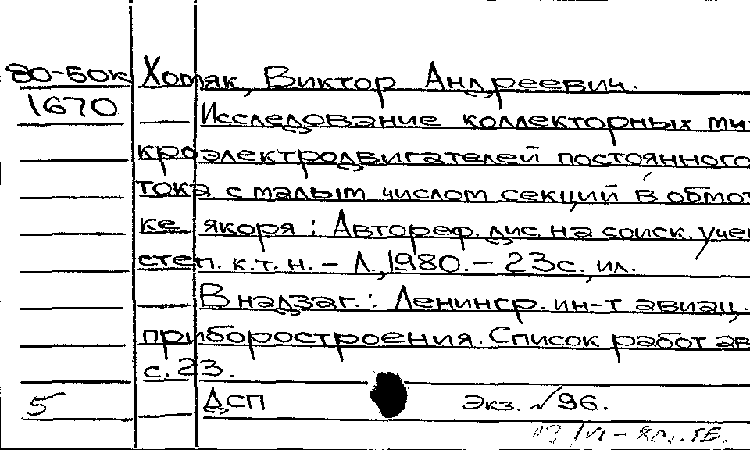 80-50к Хомяк, Виктор Андреевич.
1670 Исследование коллекторных ми-
кроэлектродвигателей постоянного
тока с малым числом секций в обмот
ке якоря : Автореф. дис. на соиск. учен
степ. к.т.н. - Л., 1980. - 23с., ил.
В надзаг. : Ленингр. ин-т авиац.
приборостроения. Список работ ав
с. 23.
5 ДСП Экз. №96.